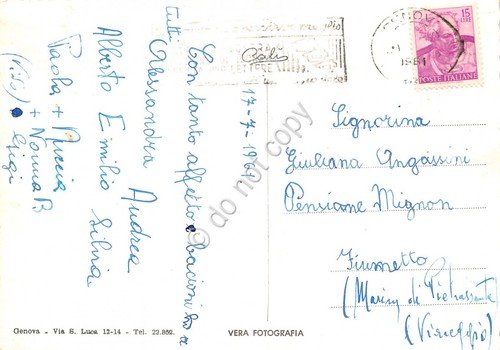 17-7-1961
Con tanto affetto e bacioni a
tutti
Alessandra Andrea
Alberto Emilio Silvia
Paola + Mirria
+ Nonna B
(Vito) Gigi
15
LIRE
GENOVA
1961
POSTE ITALIANE
Signorina
Giuliana Angassini
Pensione Mignon
Fiumetto
(Marina di Pietrasanta)
(Viareggio)
Genova - Via S. Luca 12-14 - Tel. 22.862.
VERA FOTOGRAFIA
© do not copy